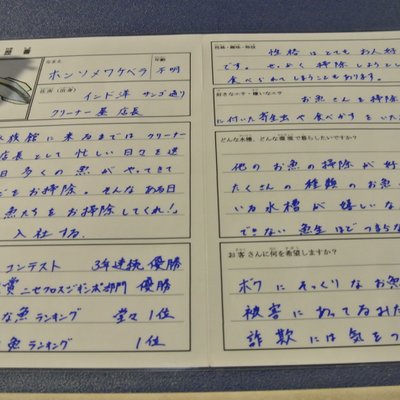 ホンソメワケベラ
年齢
不明
インド洋 サンゴ通り
クリーナー屋 店長
族館に来るまでは クリーナー
店長として 忙しい日々を送
日多くの魚が やってきて
をお掃除。そんなある日
魚たちをお掃除してくれ!」
入社する。
コンテスト 3年連続 優勝
賞 ニセクロスジギンポ部門 優勝
な魚ランキング 堂々1位
魚ランキング 1位
性格・趣味・特技
性格はとてもお人好
です。せっかく掃除しようとし
食べられてしまうこともあります。
好きなエサ・嫌いなエサ
お魚さんを掃除
に付いた寄生虫や食べかすをいた
どんな水槽、どんな環境で暮らしたいですか?
他のお魚の掃除が好
たくさんの種類のお魚
いる水槽が嬉しいな
できない魚生ほどつまらな
お客さんに何を希望しますか?
ボクにそっくりなお魚
被害にあってるみた
詐欺には気をつ